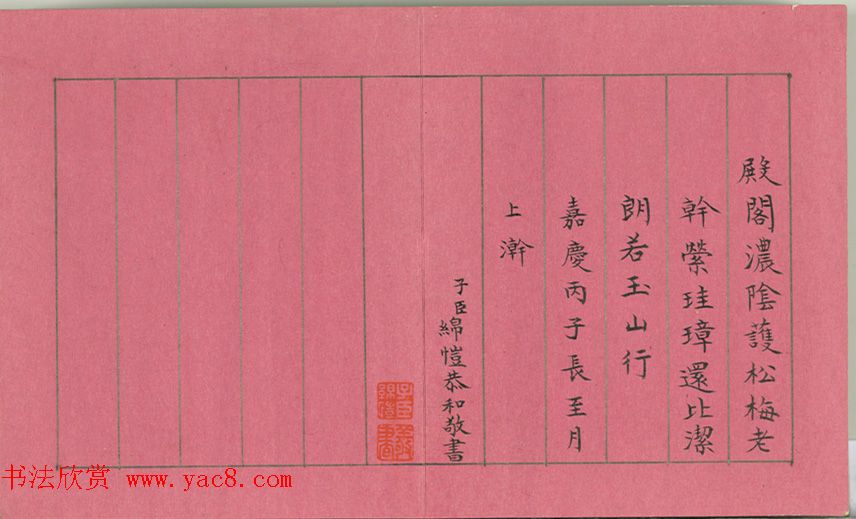 殿閣濃陰護松梅老
幹縈珪璋還比潔
朗若玉山行
嘉慶丙子長至月
上澣
子臣綿愷恭和敬書
书法欣赏 www.yac8.com